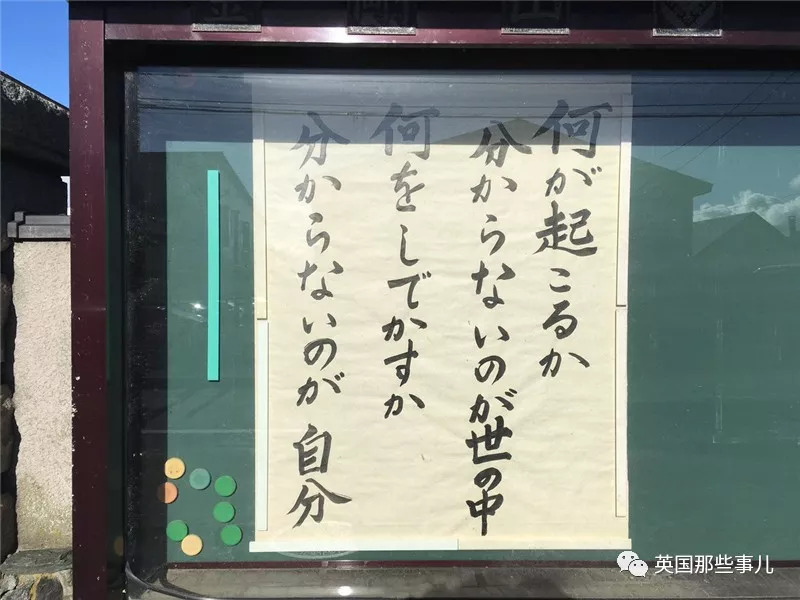 何が起こるか
分からないのが世の中
何をしでかすか
分からないのが 自分
英国那些事儿